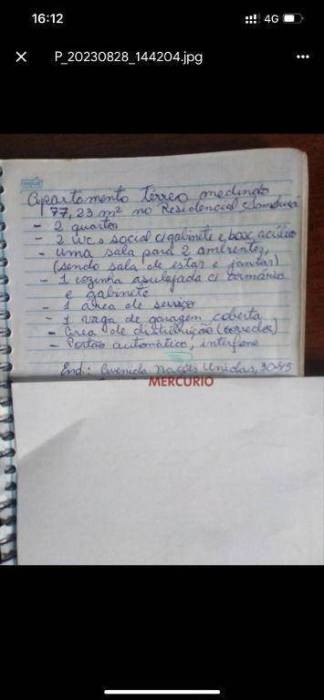 16:12
4G
P_20230828_144204.jpg
Apartamento térreo medindo
77,23 m² no Residencial
- 2 quartos
- 2 wc, social c/gabinete e box acrílico
- uma sala para 2 ambientes,
(sendo sala de estar e jantar)
- 1 cozinha azulejada c/
e gabinete
- 1 área de serviço
- 1 vaga de garagem coberta
- Área de distribuição (corredor)
- Portão automático, interfone
End: Avenida Nações Unidas, 3045
MERCURIO